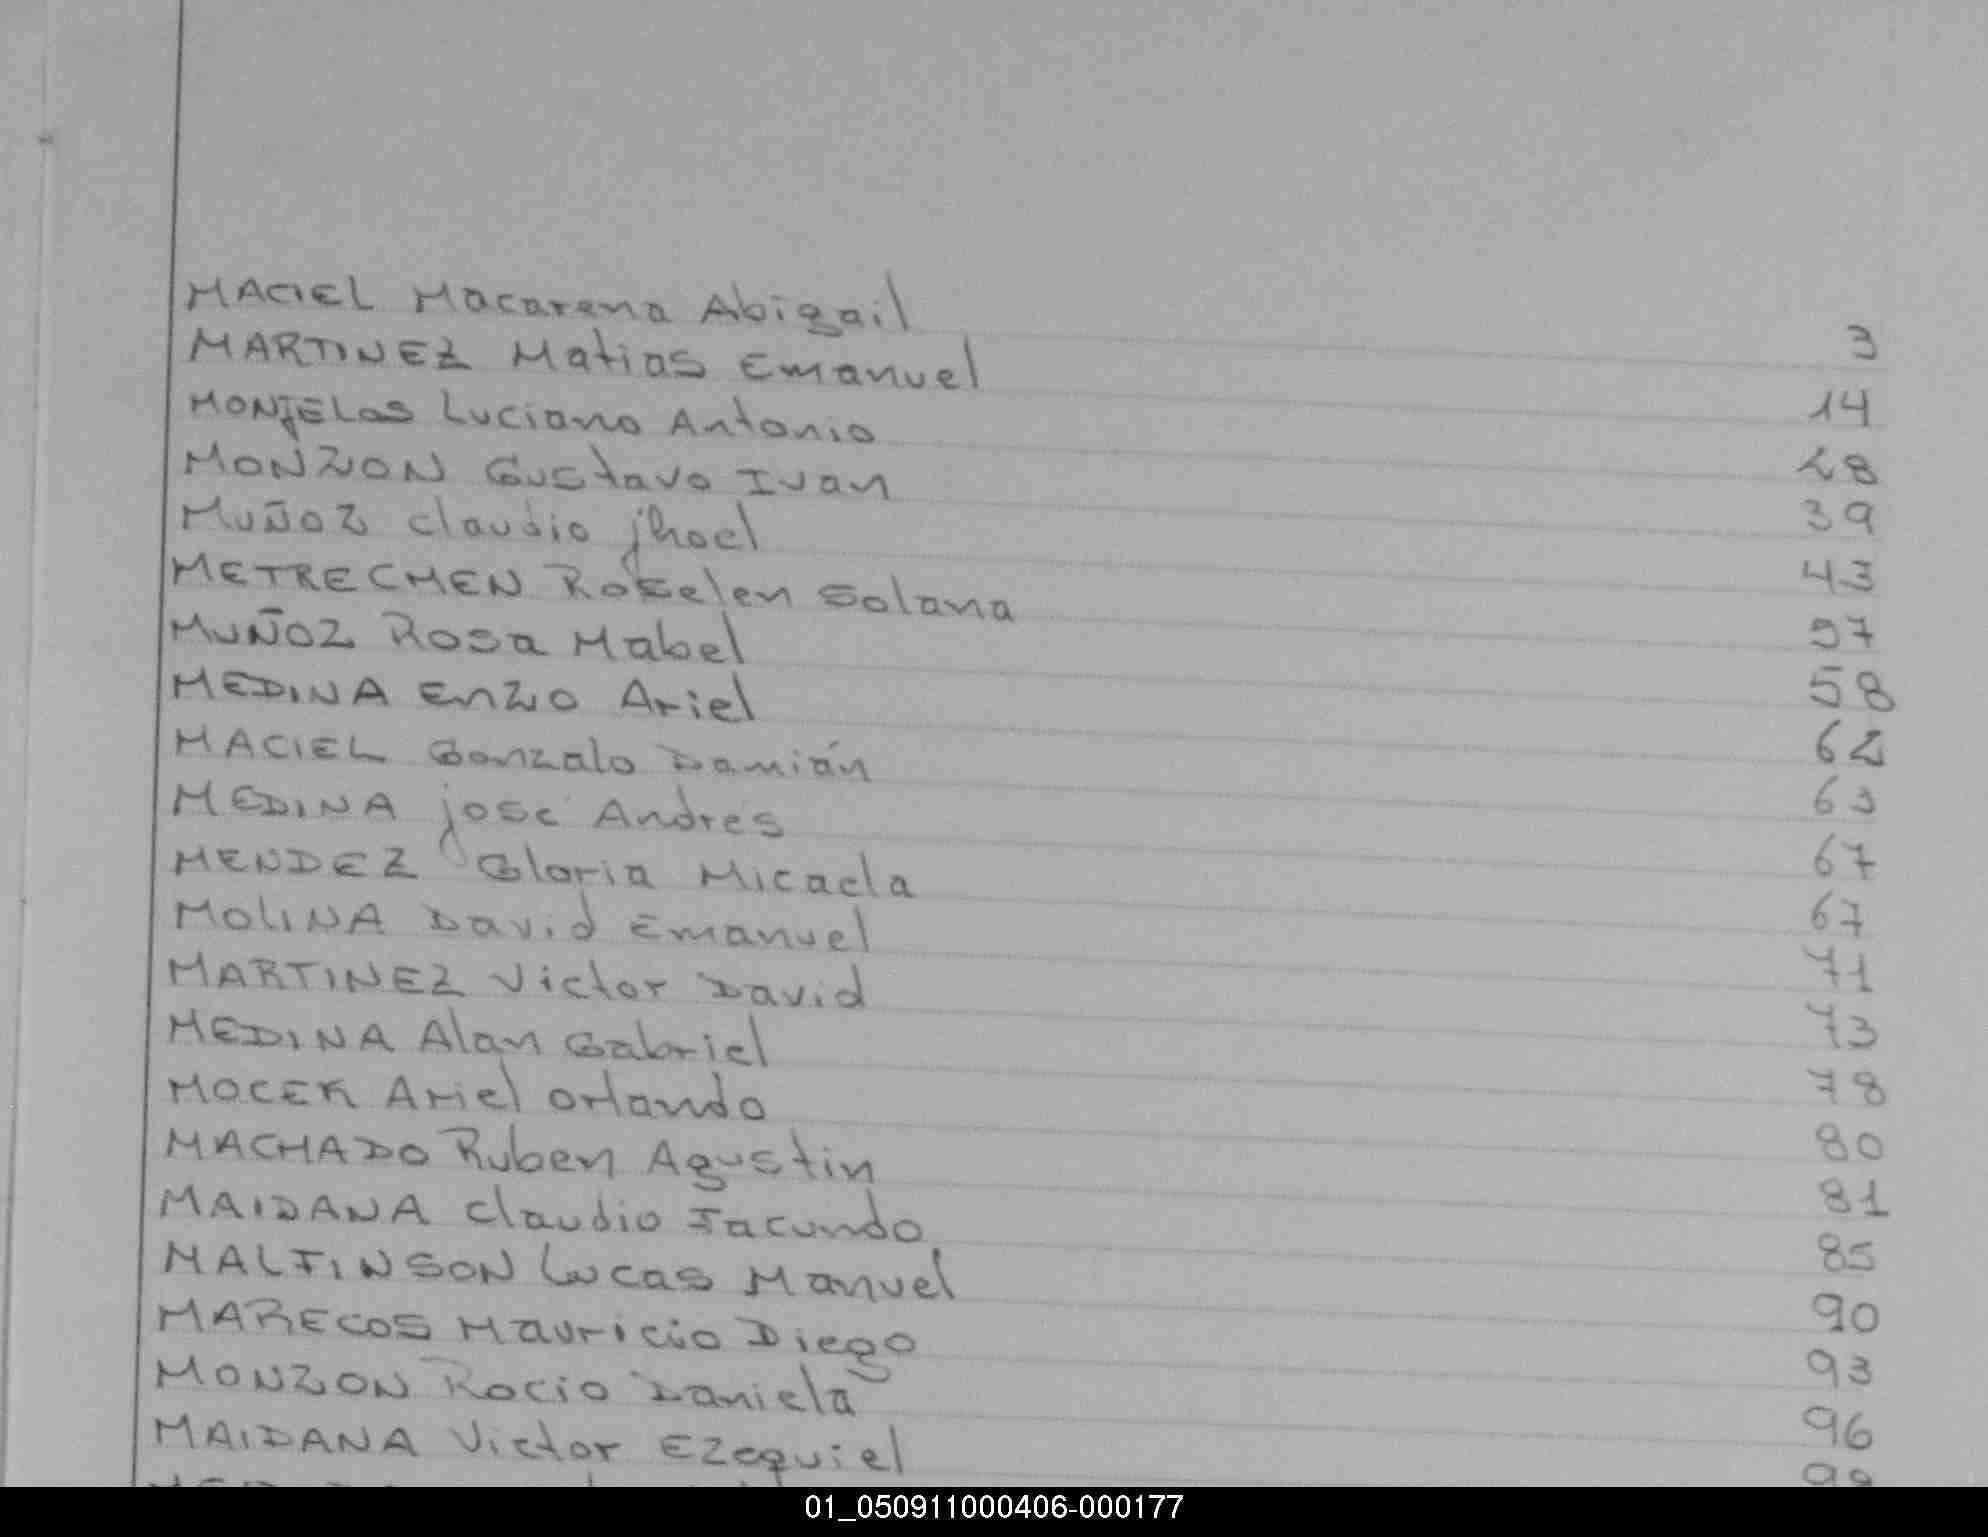 MACIEL Macarena Abigail 3
MARTINEZ Matias Emanuel 14
MONJELOS Luciano Antonio 28
MONZON Gustavo Ivan 39
MUÑOZ Claudio jhoel 43
METRECHEN Roselen Solana 57
MUÑOZ Rosa Mabel 58
MEDINA Enzo Ariel 62
MACIEL Gonzalo Damián 63
MEDINA josé Andrés 67
MENDEZ Gloria Micaela 67
MOLINA David Emanuel 71
MARTINEZ Victor David 73
MEDINA Alan Gabriel 78
MOCEK Ariel Orlando 80
MACHADO Ruben Agustin 81
MAIDANA Claudio Facundo 85
MALFINSON Lucas Manuel 90
MARECOS Mauricio Diego 93
MONZON Rocio Daniela 96
MAIDANA Victor Ezequiel
01_050911000406-000177